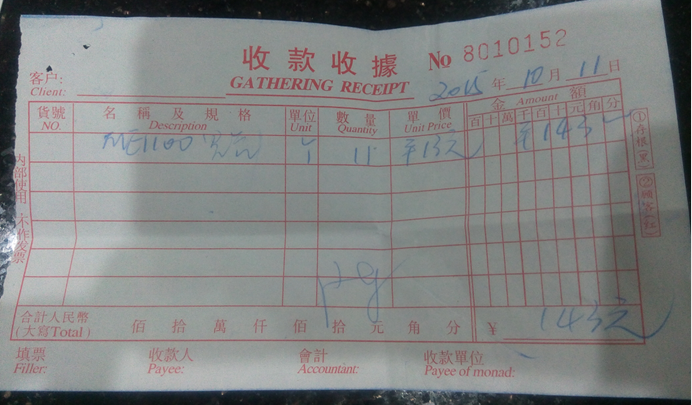 收款收據 No 8010152
客户:
Client: GATHERING RECEIPT 2015 年 10 月 11 日
貨號 名稱及規格 單位 數量 單價 金 Amount 額
NO. Description Unit Quantity Unit Price 百 十 萬 千 百 十 元 角 分
ME1100 个 11 ¥13元 ¥143
內部使用 不作發票
①存根(黑) ②顧客(紅)
合計人民幣
(大寫Total) 佰 拾 萬 仟 佰 拾 元 角 分 ¥ 143元
填票 收款人 會計 收款單位
Filler: Payee: Accountant: Payee of monad: